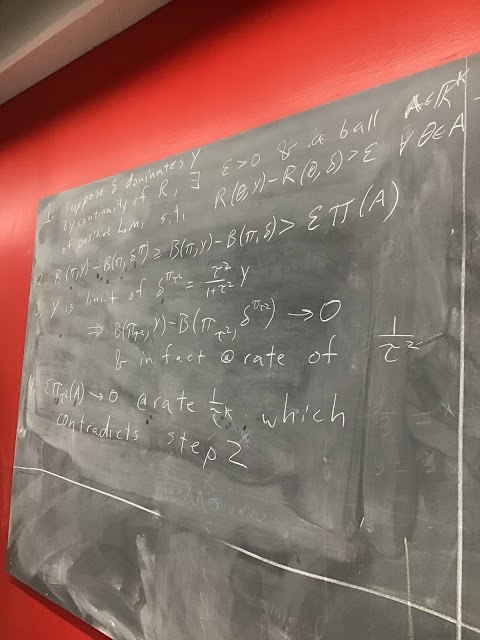 1. Suppose δ dominates Y
By continuity of R, ∃ ε>0 & a ball A∈ℝᴷ
of positive Lbm, s.t. R(θ,Y)-R(θ,δ)>ε ∀θ∈A
2. B(π,Y)-B(π,δ^π) ≥ B(π,Y)-B(π,δ) > επ(A)
3. Y is limit of δ^{π_τ²} = τ²/(1+τ²) Y
⇒ B(π_τ²,Y)-B(π_τ²,δ^{π_τ²}) → 0
& in fact @ rate of 1/τ²
επ_τ²(A)→0 @ rate 1/τᴷ which
contradicts step 2